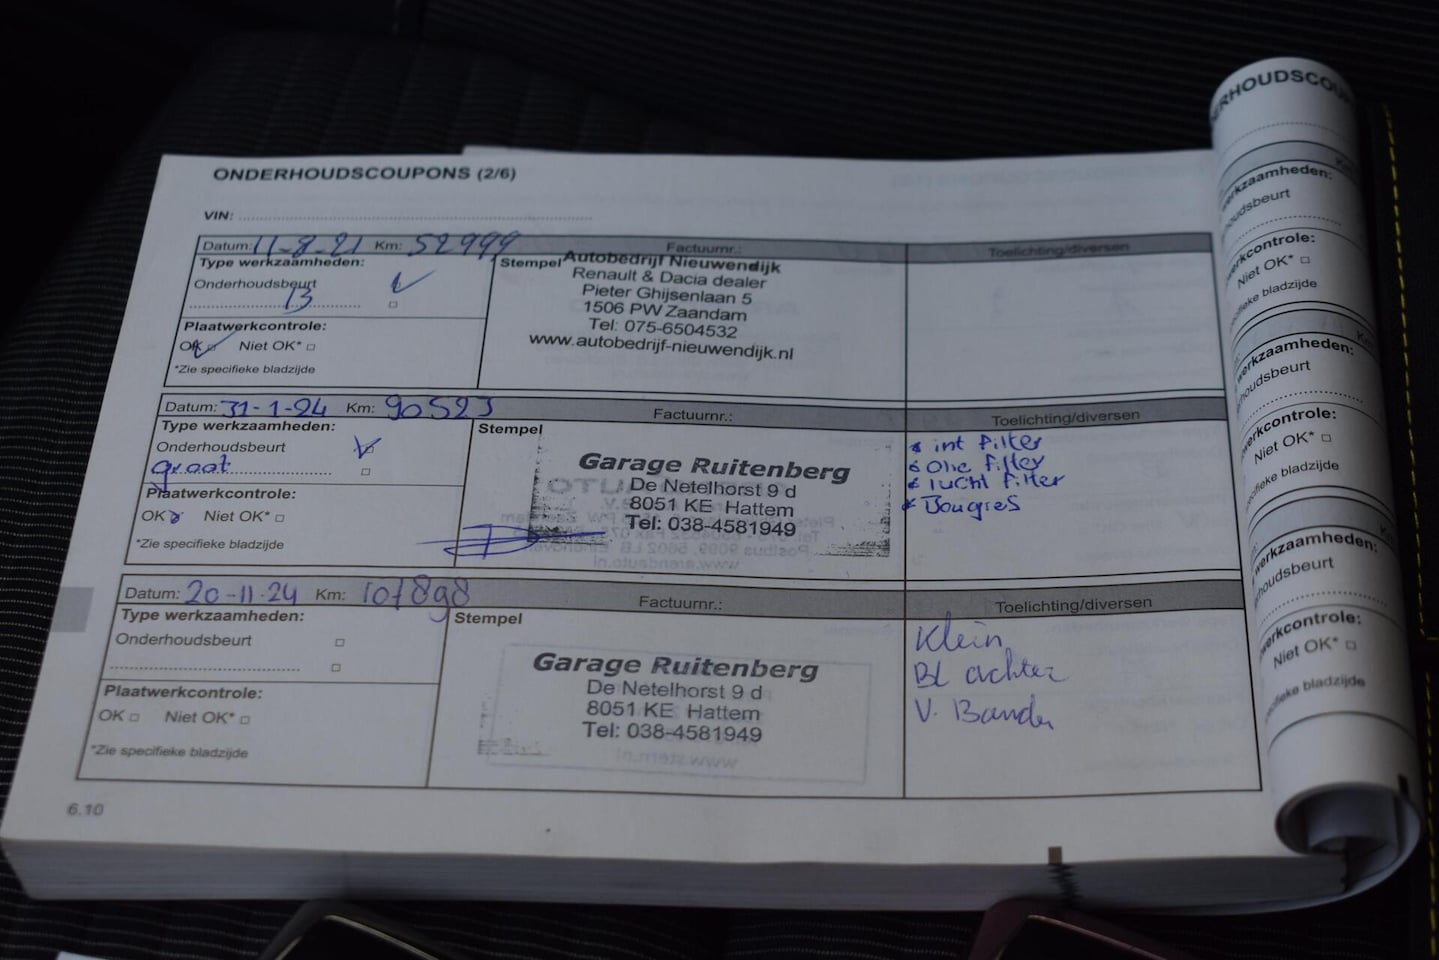 ONDERHOUDSCOUPONS (2/6)
VIN:
Datum: 11-8-21 Km: 52999 Factuurnr.: Toelichting/diversen
Type werkzaamheden:
Onderhoudsbeurt
Plaatwerkcontrole:
OK Niet OK*
*Zie specifieke bladzijde
Stempel
Autobedrijf Nieuwendijk
Renault & Dacia dealer
Pieter Ghijsenlaan 5
1506 PW Zaandam
Tel: 075-6504532
www.autobedrijf-nieuwendijk.nl
Datum: 31-1-24 Km: 90523 Factuurnr.: Toelichting/diversen
Type werkzaamheden:
Onderhoudsbeurt
groot
Plaatwerkcontrole:
OK Niet OK*
*Zie specifieke bladzijde
Stempel
Garage Ruitenberg
De Netelhorst 9 d
8051 KE Hattem
Tel: 038-4581949
* int filter
* olie filter
* lucht filter
* Bougies
Datum: 20-11-24 Km: 107898 Factuurnr.: Toelichting/diversen
Type werkzaamheden:
Onderhoudsbeurt
Plaatwerkcontrole:
OK Niet OK*
*Zie specifieke bladzijde
Stempel
Garage Ruitenberg
De Netelhorst 9 d
8051 KE Hattem
Tel: 038-4581949
Klein
Bl achter
V. Banden
6.10
werkzaamheden:
Niet OK*
werkzaamheden:
Niet OK*
werkzaamheden:
Niet OK*